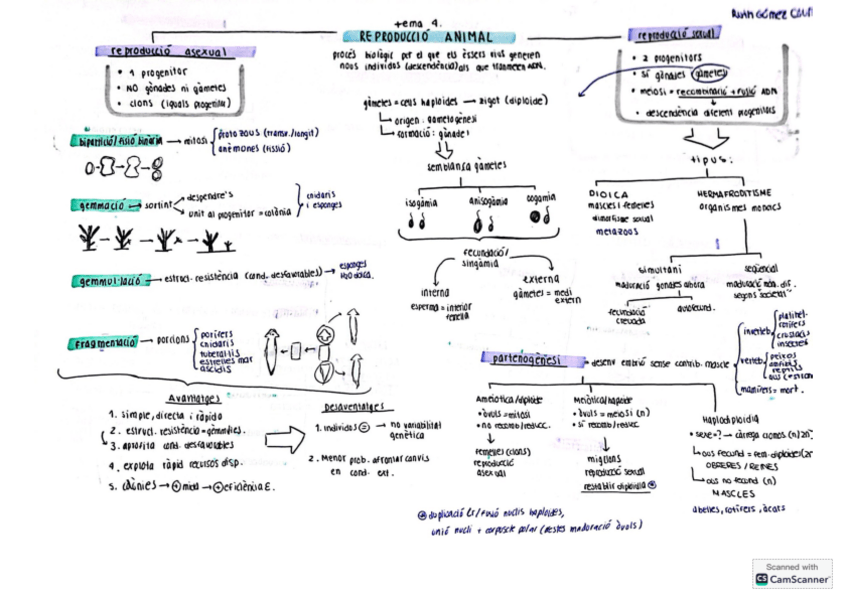 Ruth Gómez
tema 4.
REPRODUCCIÓ ANIMAL
procés biològic per el que els èssers vius generen
nous individus (descendència) als que transmeten ADN.
reproducció asexual
• 1 progenitor
• NO gònades ni gàmetes
• clons (iguals progenitor)
bipartició/fissió binària → mitosi
protozous (transv./longit)
anèmones (fissió)
gemmació → sortint
despendre's
unit al progenitor = colònia
cnidaris
i esponges
gemmul·lació → estruct. resistència (cond. desfavorables) → esponges
fragmentació → porcions
porifers
cnidaris
estrelles mar
ascidis
Avantatges
1. simple, directa i ràpida
2. estruct. resistència = gèmmules.
3. aprofita cond. desfavorables
4. explota ràpid recursos disp.
5. colònies → + mida → + eficiència E.
Desavantatges
1. individus = → no variabilitat
genètica
2. Menor prob. afrontar canvis
en cond. ext.
gàmetes = cèls haploides → zigot (diploide)
origen: gametogènesi
formació: gònades
semblança gàmetes
isogàmia
anisogàmia
oogamia
fecundació/
singàmia
interna
esperma = interior
femella
externa
gàmetes = medi
extern
reproducció sexual
• 2 progenitors
• sí gònades (gàmetes)
• meiosi = recombinació + fusió ADN
• descendència diferent progenitors
tipus:
DIOICA
mascles i femelles
dimorfisme sexual
metazous
HERMAFRODITISME
organismes monoics
simultani
maduració gònades alhora
fecundació
creuada
autofecund.
seqüencial
maduració mom. dif.
segons societat
partenogènesi → desenv embrió sense contrib. mascle
inverteb.
platihel.
rotífers
crustacis
insectes
verteb.
peixos
amfibis
reptils
mamífers = mort.
Ameiòtica/diploide
• òvuls = mitosi
• no recomb/reducc.
femelles (clons)
reproducció
asexual
Meiòtica/haploide
• òvuls = meiosi (n)
• sí recomb/reducc.
reproducció sexual
restablir diploidia
Haplodiploïdia
• sexe = ? → càrrega cromos (n)/2n
ous fecund = fem. diploides (2n
OBRERES / REINES
ous no fecund (n)
MASCLES
abelles, rotífers, àcars
duplicació cr/fusió nuclis haploides,
unió nucli + corpuscle polar (restes maduració òvuls)
Scanned with
CS CamScanner